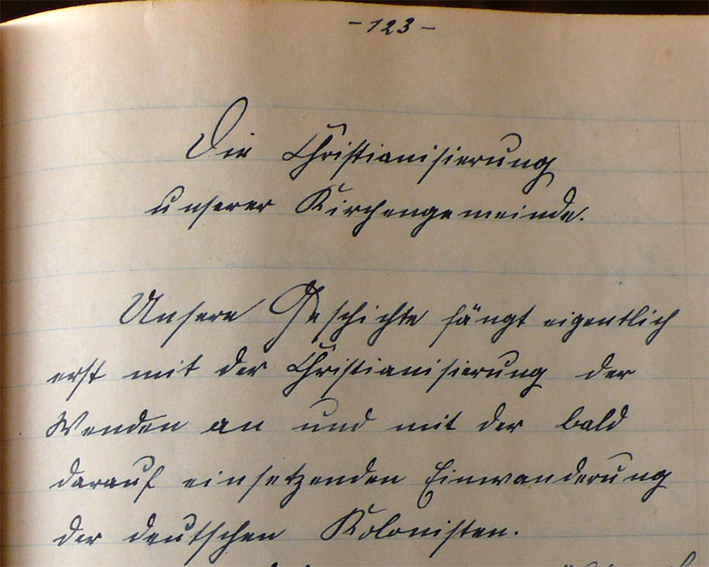 - 123 -
Die Christianisierung
unserer Kirchengemeinde.
Unsere Geschichte fängt eigentlich
erst mit der Christianisierung der
Wenden an und mit der bald
darauf einsetzenden Einwanderung
der deutschen Kolonisten.